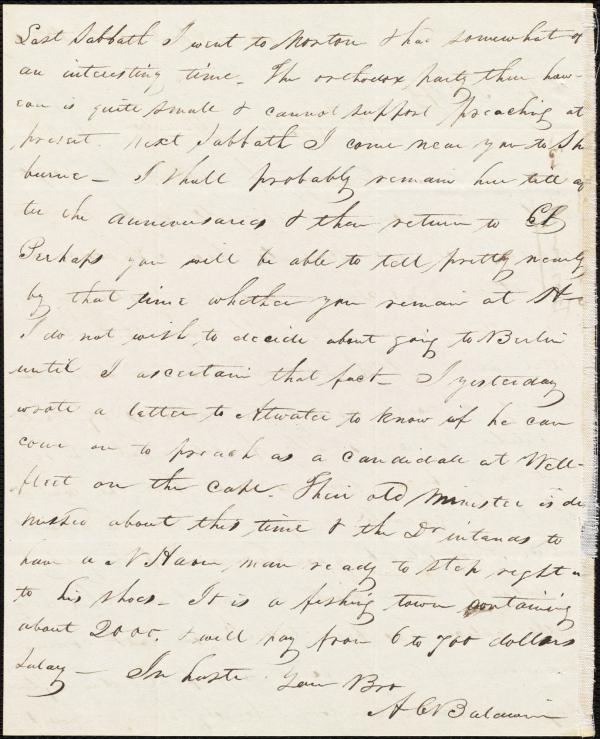 Last Sabbath I went to Norton & had somewhat of
an interesting time. The orthodox party there how-
ever is quite small & cannot support preaching at
present. next Sabbath I come near you to Sh
burne - I shall probably remain here till af
ter the anniversaries & then return to Ch
Perhaps you will be able to tell pretty nearly
by that time whether you remain at H-
I do not wish to decide about going to Berlin
until I ascertain that fact - I yesterday
wrote a letter to Atwater to know if he can
come on to preach as a candidate at Well-
fleet on the cape. Their old minister is dis
missed about this time & the Dr intends to
have a N Haven man ready to step right in
to his shoes - It is a fishing town containing
about 2000. & will pay from 6 to 700 dollars
Salary - In haste Your Bro
A C Baldwin